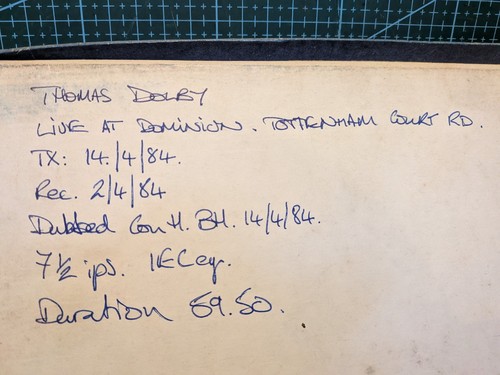 THOMAS DOLBY
LIVE AT DOMINION. TOTTENHAM COURT RD.
TX: 14/4/84.
Rec. 2/4/84
Dubbed Con H. BH. 14/4/84.
7½ ips. IEC eq.
Duration 59.50.